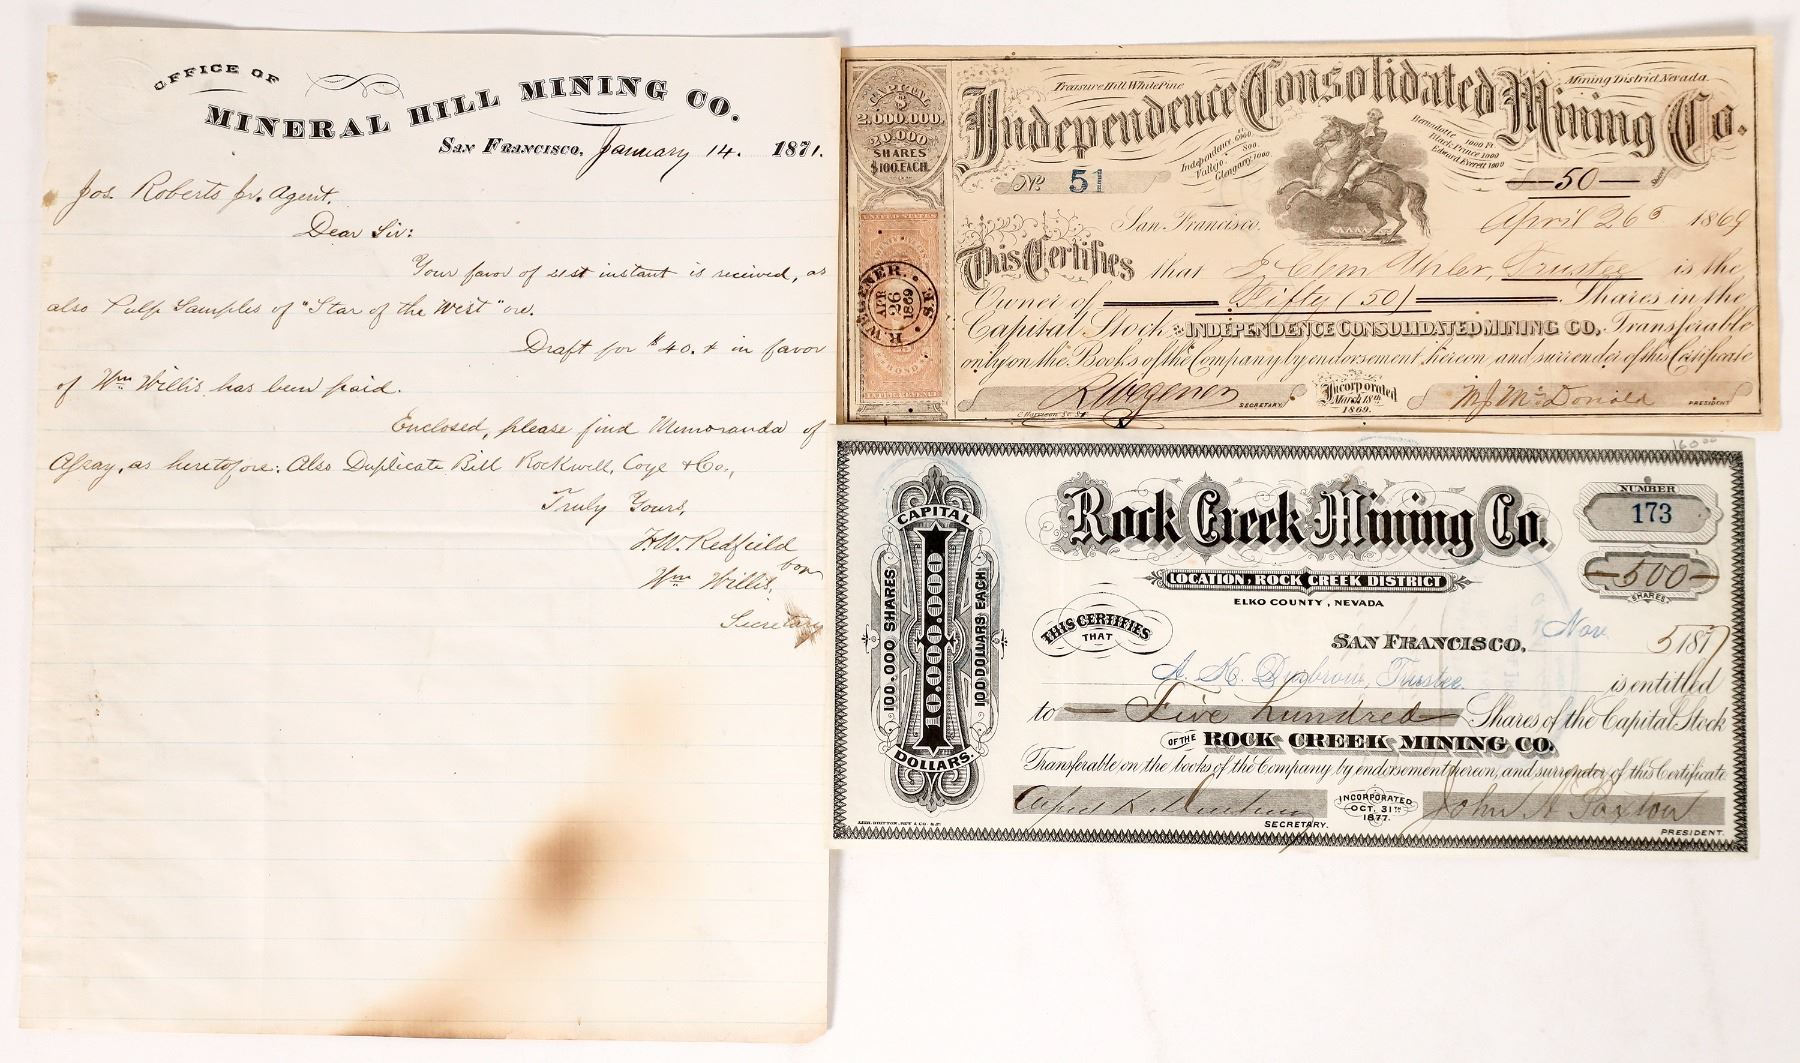 OFFICE OF
MINERAL HILL MINING CO.
San Francisco, January 14. 1871.
Jos. Roberts Jr. Agent.
Dear Sir:
Your favor of inst instant is received, as
also Pulp Samples of "Star of the West" ore.
Draft for $40.+ in favor
of Wm Willis has been paid.
Enclosed, please find Memoranda of
Assay, as heretofore: Also Duplicate Bill Rockwell, Coye & Co.,
Truly Yours,
H.W. Redfield
for
Wm Willis,
Secretary
CAPITAL
$
2,000,000.
20,000
SHARES
$100. EACH.
UNITED STATES
R. WEGENER.
APR
26
1869
Treasure Hill White Pine
Mining District, Nevada.
Independence Consolidated Mining Co.
Independence 1000.
Vallejo. 800.
Glengary, 1000.
Bernadotte 1000 Ft.
Black Prince 1000
Edward Everett 1000
No. 51
—50— Shares
San Francisco, April 26 1869
This Certifies that J. Clem Uhler, Trustee is the
Owner of Fifty (50) Shares in the
Capital Stock of the INDEPENDENCE CONSOLIDATED MINING CO. Transferable
only on the Books of the Company by endorsement hereon and surrender of this Certificate
R Wegener SECRETARY.
Incorporated
March 18th
1869.
M J McDonald PRESIDENT
160.00
CAPITAL
10.000.000
DOLLARS.
100.000 SHARES
100 DOLLARS EACH
Rock Creek Mining Co.
LOCATION, ROCK CREEK DISTRICT
ELKO COUNTY, NEVADA
NUMBER
173
—500—
SHARES
THIS CERTIFIES
THAT
SAN FRANCISCO, Nov 5 1877
A. K. Trustee. is entitled
to — Five hundred — Shares of the Capital Stock
OF THE ROCK CREEK MINING CO.
Transferable on the books of the Company by endorsement hereon, and surrender of this Certificate
Alfred K.
SECRETARY.
INCORPORATED
OCT. 31TH
1877.
John A Paxton
PRESIDENT.